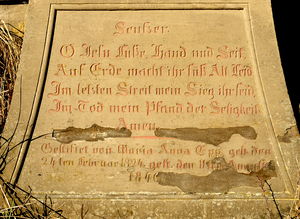 Seufzer.
O Jesu Füße, Hand und Seit,
Auf Erde macht ihr süß All Leid
Im letzten Streit mein Sieg ihr seid,
Im Tod mein Pfand der Seligkeit
Amen.
Gestiftet von Maria Anna Epp, geb. den
24ten Februar 1824 gest. den
184